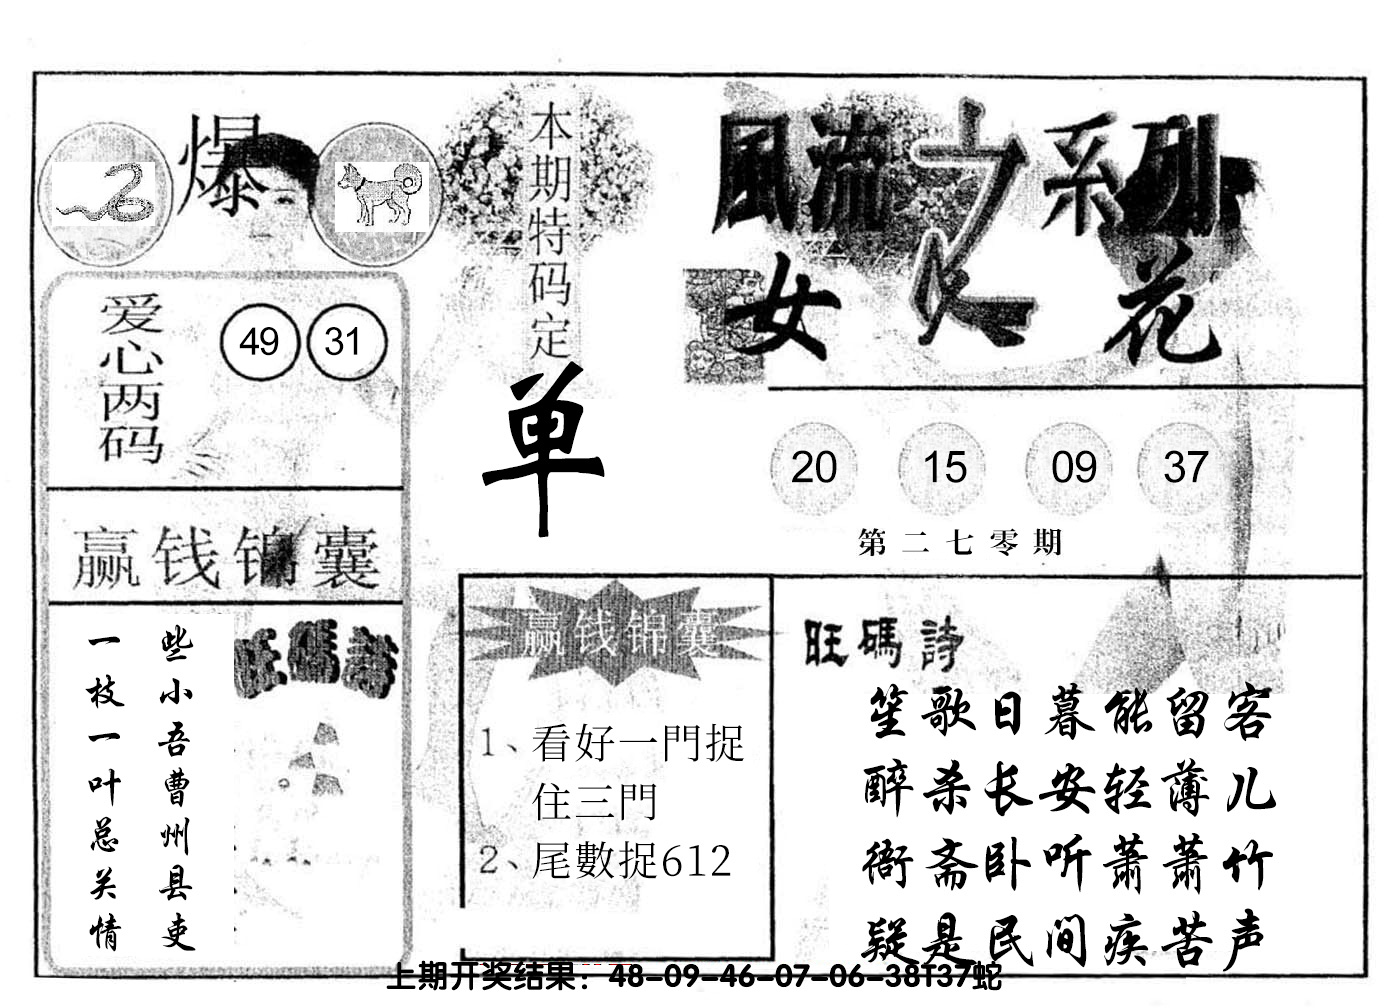 爆
本期特码定
单
風流之系列
女人花
爱心两码
49 31
20 15 09 37
第二七零期
赢钱锦囊
些小吾曹州县吏
一枝一叶总关情
旺碼詩
赢钱锦囊
1、看好一門捉
住三門
2、尾數捉612
旺碼詩
笙歌日暮能留客
醉杀长安轻薄儿
衙斋卧听萧萧竹
疑是民间疾苦声
上期开奖结果：48-09-46-07-06-38T37蛇